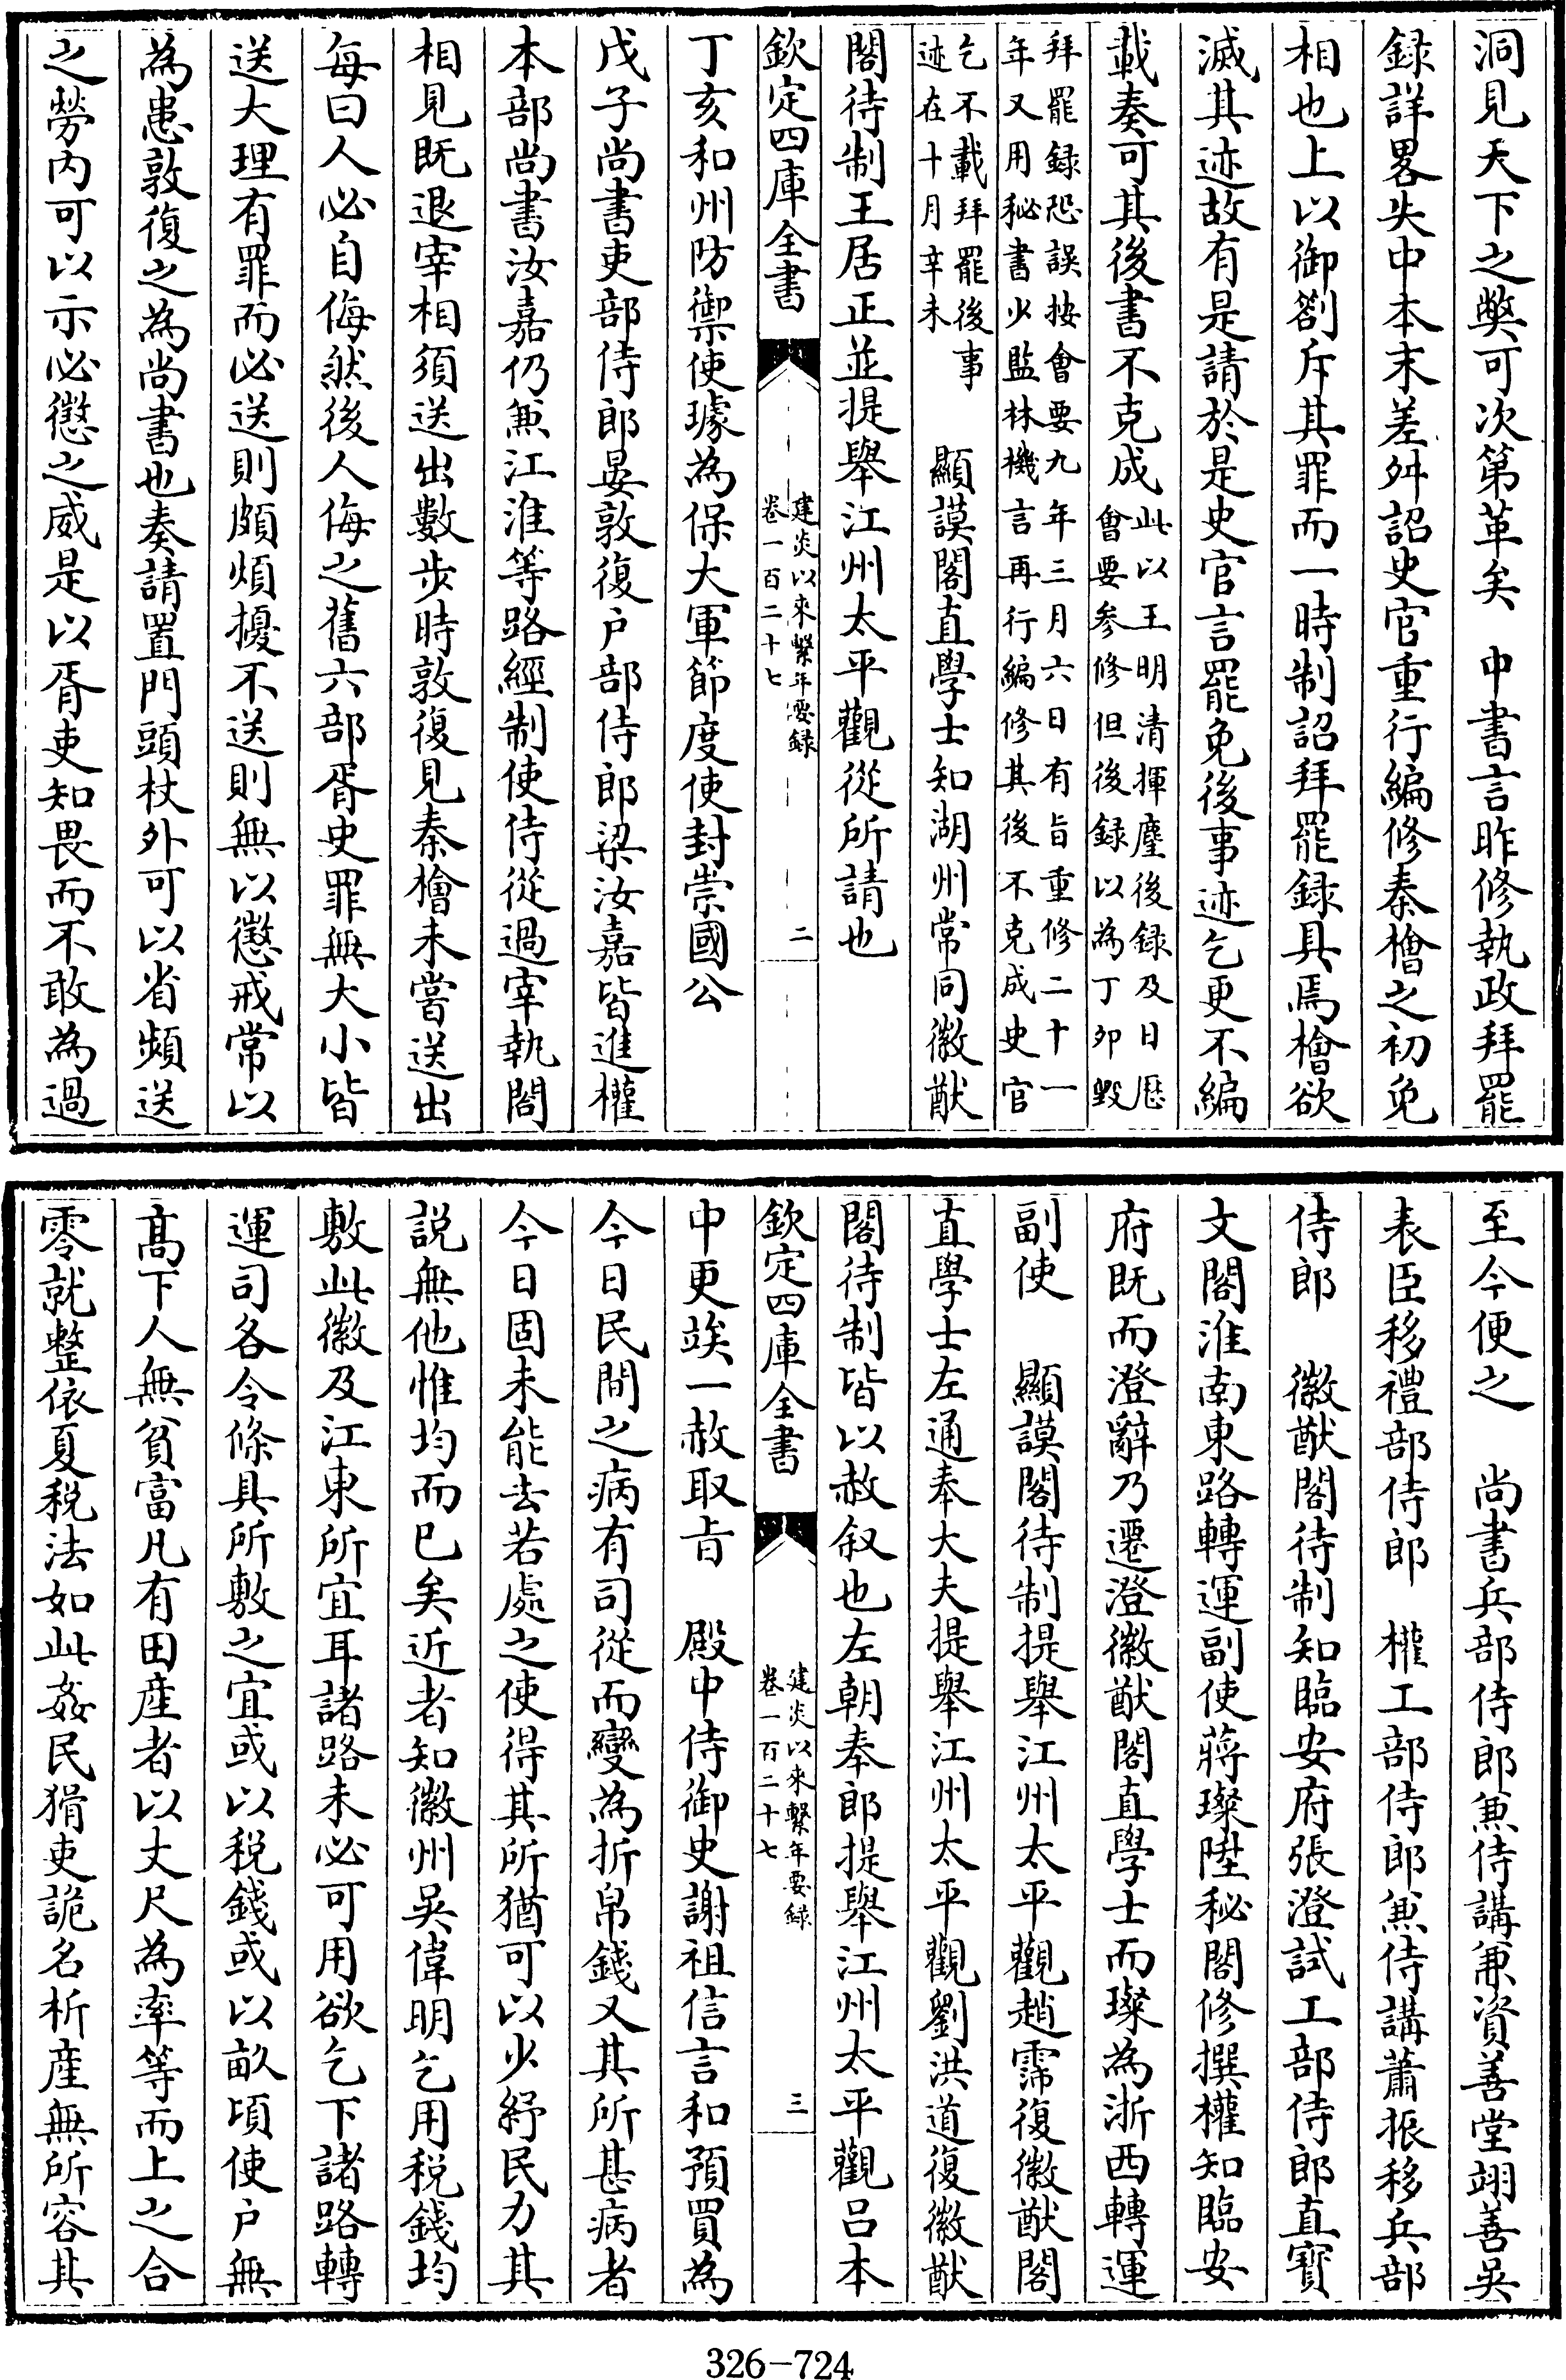 洞見天下之弊可次第革矣　中書言昨修執政拜罷
録詳畧失中本末差舛詔史官重行編修秦檜之初免
相也上以御劄斥其罪而一時制詔拜罷録具焉檜欲
滅其迹故有是請於是史官言罷免後事迹乞更不編
載奏可其後書不克成此以王明清揮麈後録及日厯
會要參修但後録以為丁夘毀
拜罷録恐誤按會要九年三月六日有旨重修二十一
年又用秘書少監林機言再行編修其後不克成史官
乞不載拜罷後事
迹在十月辛未　顯謨閣直學士知湖州常同徽猷
閣待制王居正並提舉江州太平觀從所請也
欽定四庫全書　建炎以來繫年要録
卷一百二十七　二
丁亥和州防禦使璩為保大軍節度使封崇國公
戊子尚書吏部侍郎晏敦復户部侍郎梁汝嘉皆進權
本部尚書汝嘉仍兼江淮等路經制使侍從過宰執閣
相見既退宰相須送出數步時敦復見秦檜未嘗送出
每曰人必自侮然後人侮之舊六部胥史罪無大小皆
送大理有罪而必送則頗煩擾不送則無以懲戒常以
為患敦復之為尚書也奏請置門頭杖外可以省頻送
之勞内可以示必懲之威是以胥吏知畏而不敢為過
至今便之　尚書兵部侍郎兼侍講兼資善堂翊善吳
表臣移禮部侍郎　權工部侍郎兼侍講蕭振移兵部
侍郎　徽猷閣待制知臨安府張澄試工部侍郎直寶
文閣淮南東路轉運副使蔣璨陞秘閣修撰權知臨安
府既而澄辭乃遷澄徽猷閣直學士而璨為浙西轉運
副使　顯謨閣待制提舉江州太平觀趙霈復徽猷閣
直學士左通奉大夫提舉江州太平觀劉洪道復徽猷
閣待制皆以赦叙也左朝奉郎提舉江州太平觀吕本
欽定四庫全書　建炎以來繫年要録
卷一百二十七　三
中更竢一赦取㫖　殿中侍御史謝祖信言和預買為
今日民間之病有司從而變為折帛錢又其所甚病者
今日固未能去若處之使得其所猶可以少紓民力其
説無他惟均而已矣近者知徽州吳偉明乞用税錢均
敷此徽及江東所宜耳諸路未必可用欲乞下諸路轉
運司各令條具所敷之宜或以税錢或以畝頃使户無
髙下人無貧富凡有田産者以丈尺為率等而上之合
零就整依夏税法如此姦民猾吏詭名析産無所容其
326-724